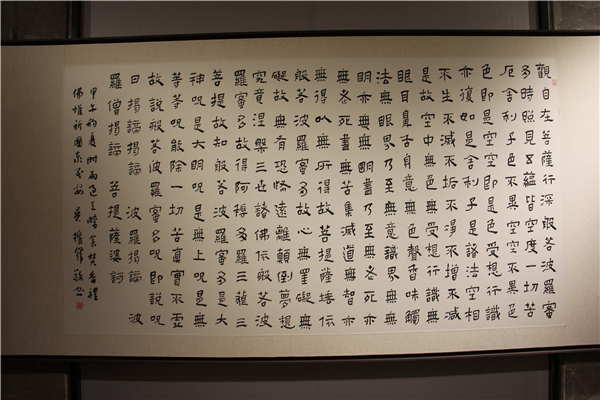 觀自在菩薩行深般若波羅蜜
多時照見五蘊皆空度一切苦
厄舍利子色不異空空不異色
色即是空空即是色受想行識
亦復如是舍利子是諸法空相
不生不滅不垢不淨不增不減
是故空中無色無受想行識無
眼耳鼻舌身意無色聲香味觸
法無眼界乃至無意識界無無
明亦無無明盡乃至無老死亦
無老死盡無苦集滅道無智亦
無得以無所得故菩提薩埵依
般若波羅蜜多故心無罣礙無
礙故無有恐怖遠離顛倒夢想
究竟涅槃三世諸佛依般若波
羅蜜多故得阿耨多羅三藐三
菩提故知般若波羅蜜多是大
神咒是大明咒是無上咒是無
等等咒能除一切苦真實不虛
故說般若波羅蜜多咒即說咒
曰揭諦揭諦 波羅揭諦 波
羅僧揭諦 菩提薩婆訶
甲午初夏